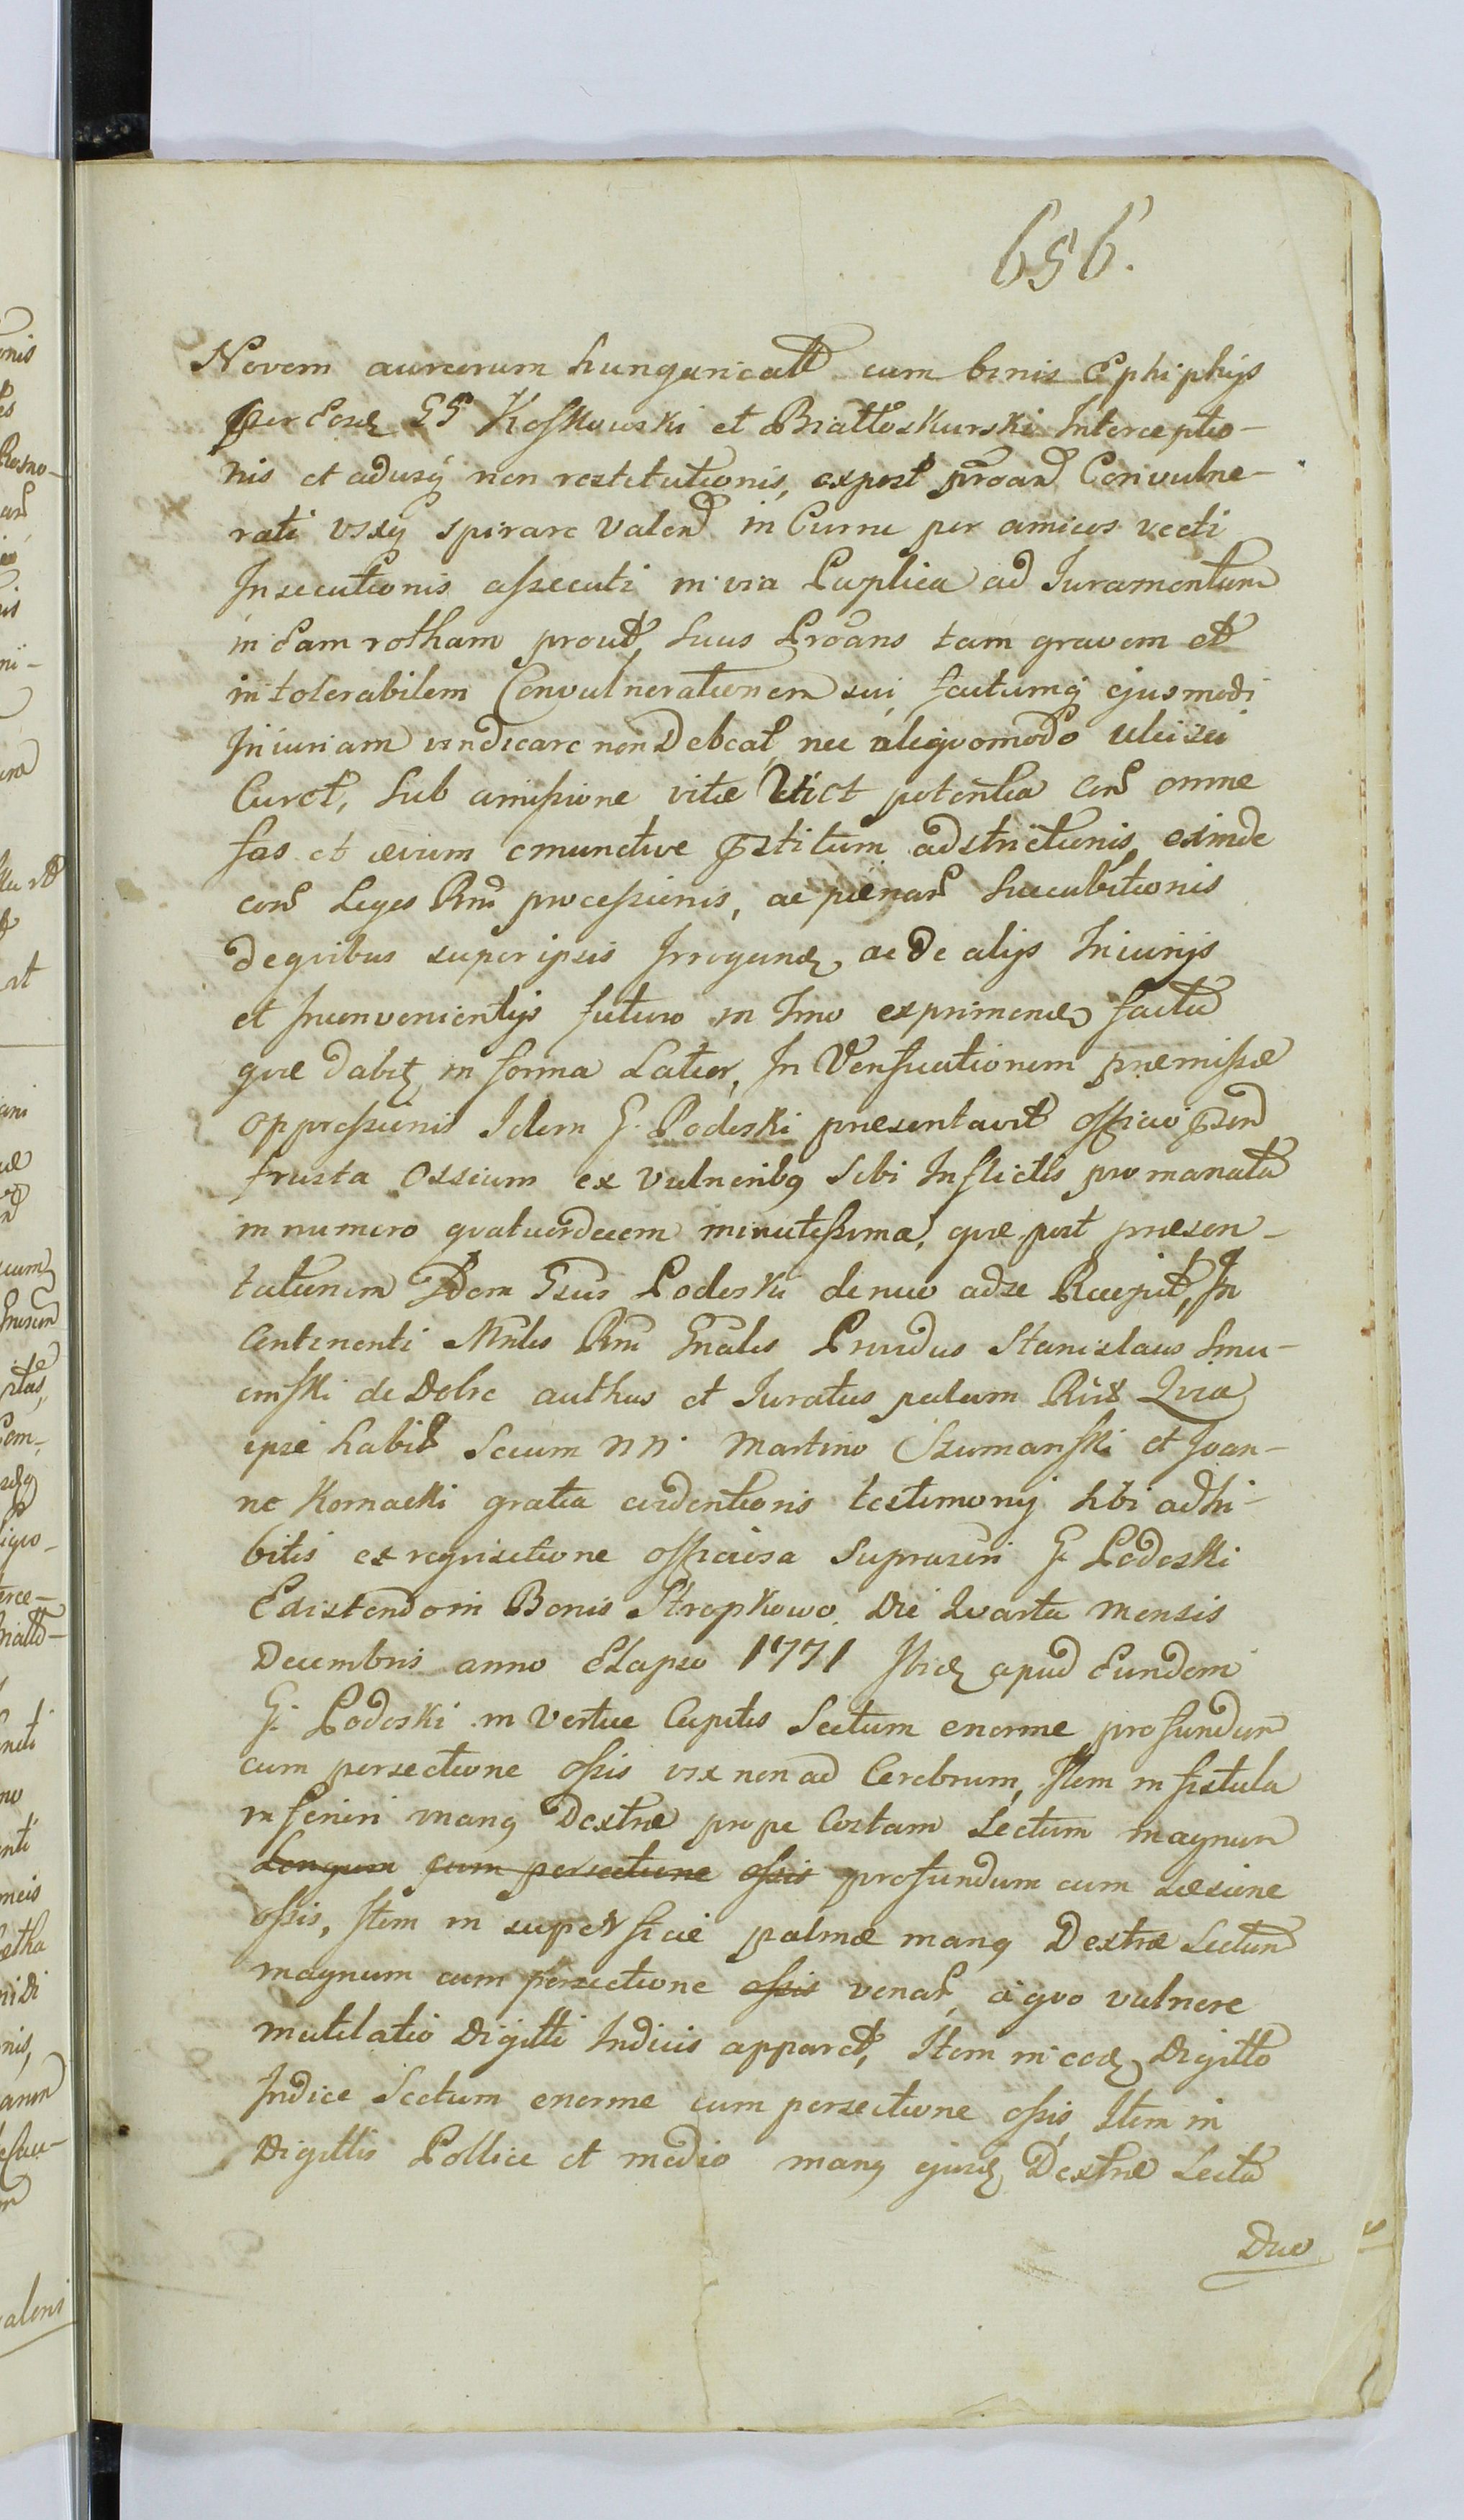 656.
Novem aureorum hungaricał cum binis Ephiphijs
per Eosd GG Koskowski et Białłoskurski Interceptio-
nis et adusq non restitutionis, expost proand Convulne-
rati vixq spirare valend in Curru per amicos vecti
Insecutionis assecuti in via Puplica ad Iuramentum
in Eam rotham prout Suus Proans tam gravem et
intolerabilem Convulnerationem sui factumq ejusmodi
Iniuriam vindicare non Debeat nec aliquomodo ulcisci
Curet, Sub amissione vitæ potentia con omne
fas et ævum emunctive pstitum adstrictionis exinde
con Leges Rni processionis, ac pænar Succubitionis
de quibus super ipsis Irrogand ac de alijs Iniurijs
et Inconvenientijs futuro in Imo exprimend facta
quæ dabit in forma Latior, In Verificationem præmissæ
oppressionis Idem G. Podoski præsentavit officio psend
frusta Ossium ex vulneribq Sibi Inflictis promanata
in numero quatuordecem minutissima, quæ post præsen-
tationem Idem Gsus Podoski denuo ad se Recepit, In
Continenti Mnlis Rni Gnalis Providus Stanislaus Smu-
de Dobre authus et Iuratus palam Rix Quia
ipse habit Secum nn. Martino Szumanski et Joan-
ne Komacki gratia evidentioris testimonij sibi adhi-
bitis ex requisitione officiosa Suprascri G. Podoski
Existendo in Bonis Stropkowo Die Quarta Mensis
Decembris anno Elapso 1771 Ibid apud Eundem
G. Podoski in Vertice Capitis Sectum enorme profundum
cum persectione ossis vix non ad Cerebrum, Item in fistula
inferiri manq Dextræ prope Costam Sectum magnum
Longum cum persectione ossis profundum cum Læsione
ossis, Item in superficie palmæ manq Dextræ Sectum
magnum cum persectione ossis venar, a quo vulnere
mutilatio Digitti Indicis apparet, Item in eod Digitto
Indice Sectum enorme cum persectione ossis, Item in
Digittis Pollice et medio manq ejusd Dextræ Secta
Duo